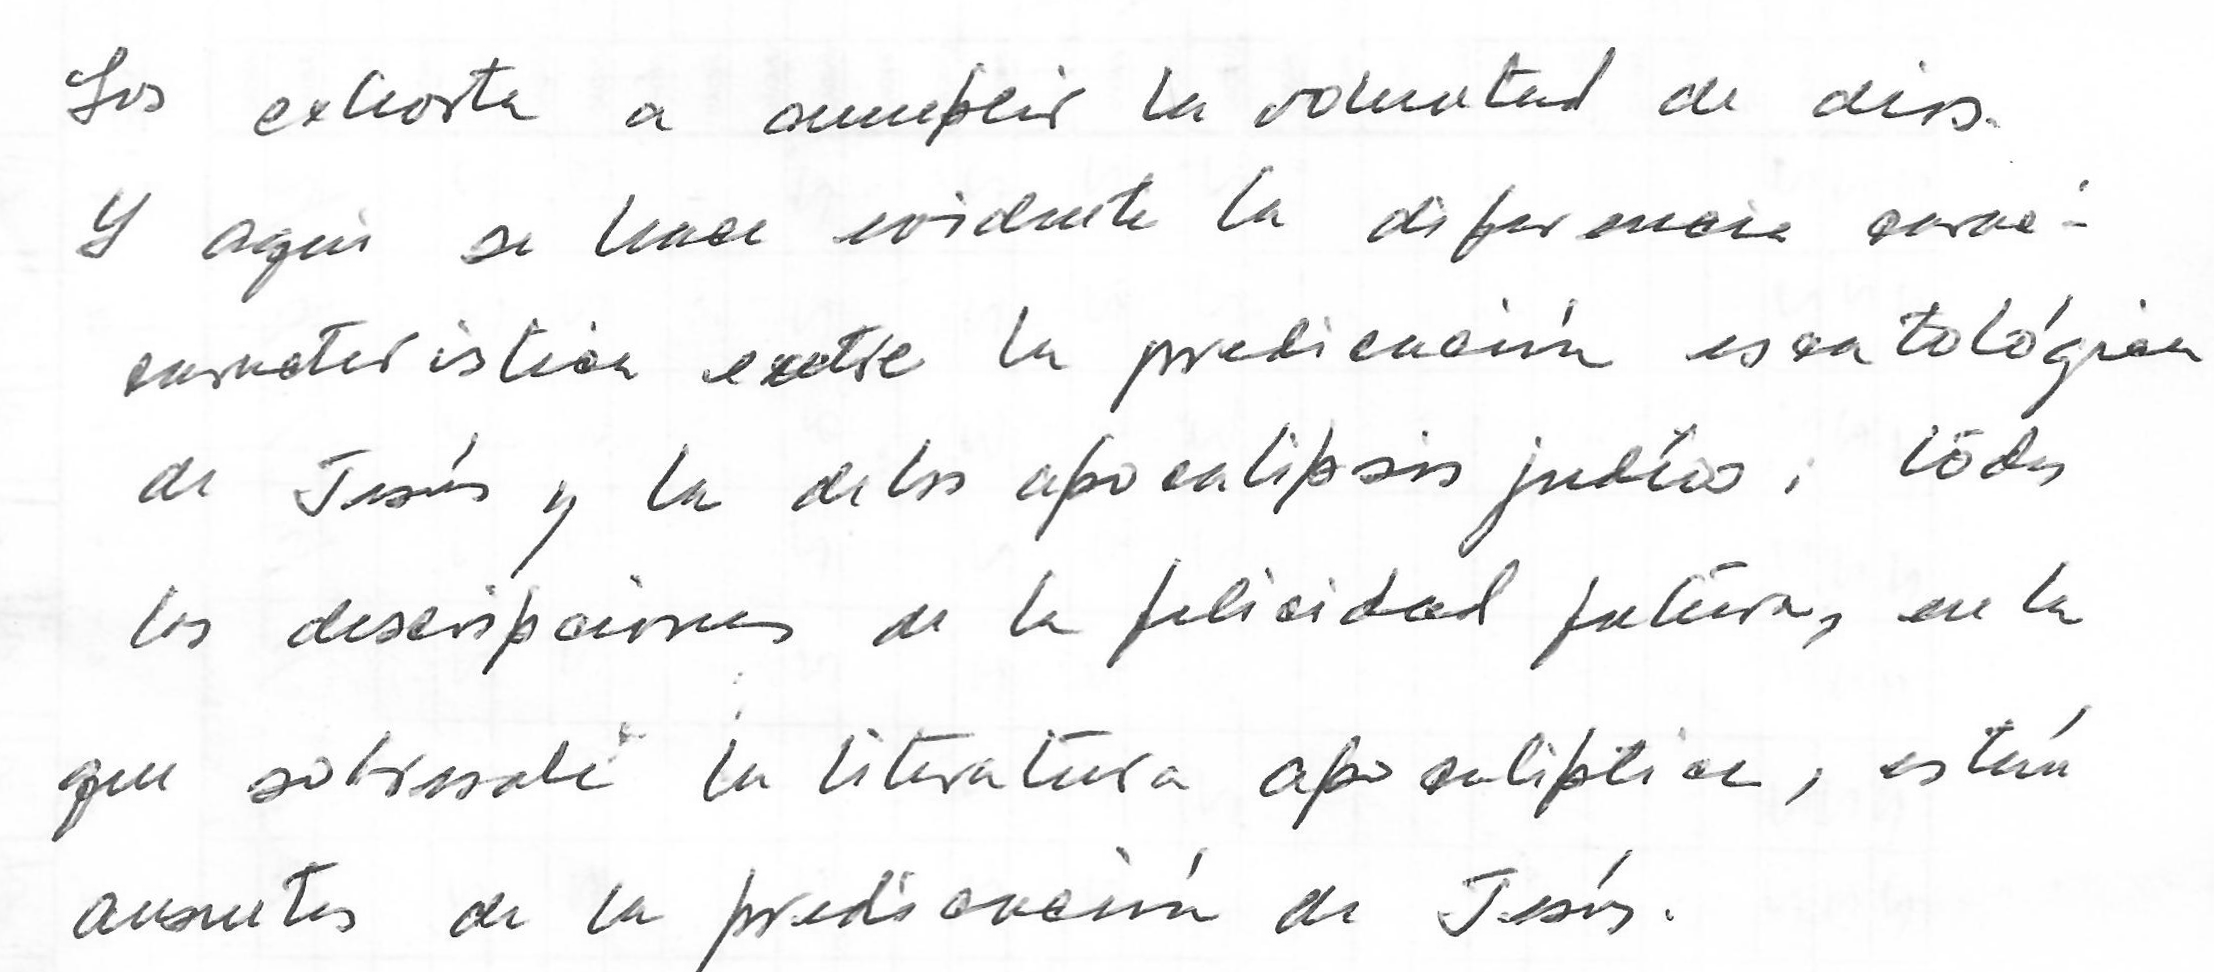 Los exhorta a cumplir la voluntad de dios.
Y aquí se hace evidente la diferencia cará-
característica entre la predicación escatológica
de Jesús y la delos apocalipsis judíos; todas
las descripciones de la felicidad futura, en la
que sobresale la literatura apocalíptica, están
ausentes de la predicación de Jesús.